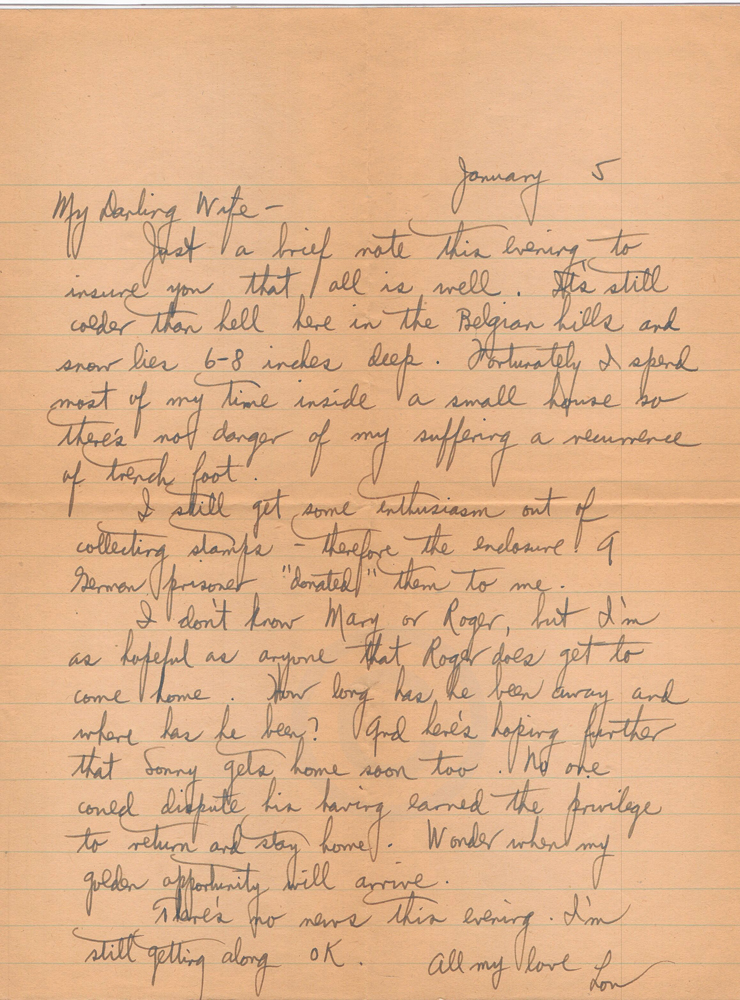 January 5
My Darling Wife -
Just a brief note this evening to
insure you that all is well. It's still
colder than hell here in the Belgian hills and
snow lies 6-8 inches deep. Fortunately I spend
most of my time inside a small house so
there's not danger of my suffering a recurrence
of trench foot.
I still get some enthusiasm out of
collecting stamps - therefore the enclosure! A
German prisoner "donated" them to me.
I don't know Mary or Roger, but I'm
as hopeful as anyone that Roger does get to
come home. How long has he been away and
where has he been? And here's hoping further
that Sonny gets home soon too. No one
could dispute his having earned the privilege
to return and stay home. Wonder when my
golden opportunity will arrive.
There's no news this evening. I'm
still getting along OK.
All my love Lou